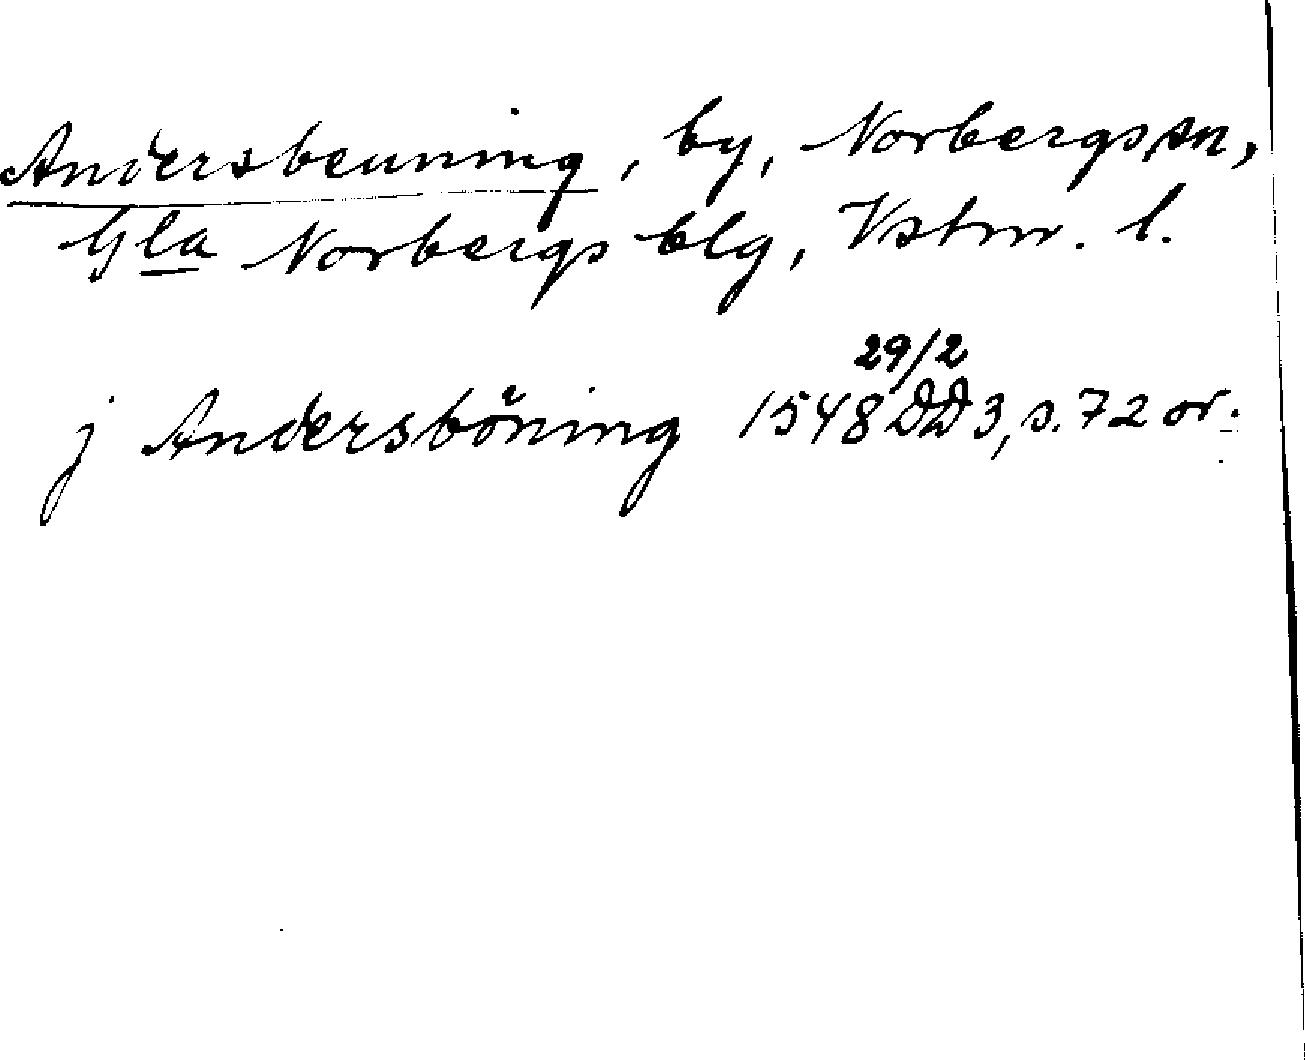 Andersbenning, by, Norbergs sn,
Gla Norbergs blg, Vstm. l.
29/2
j Andersböning 1548 DD3, s. 72 or.